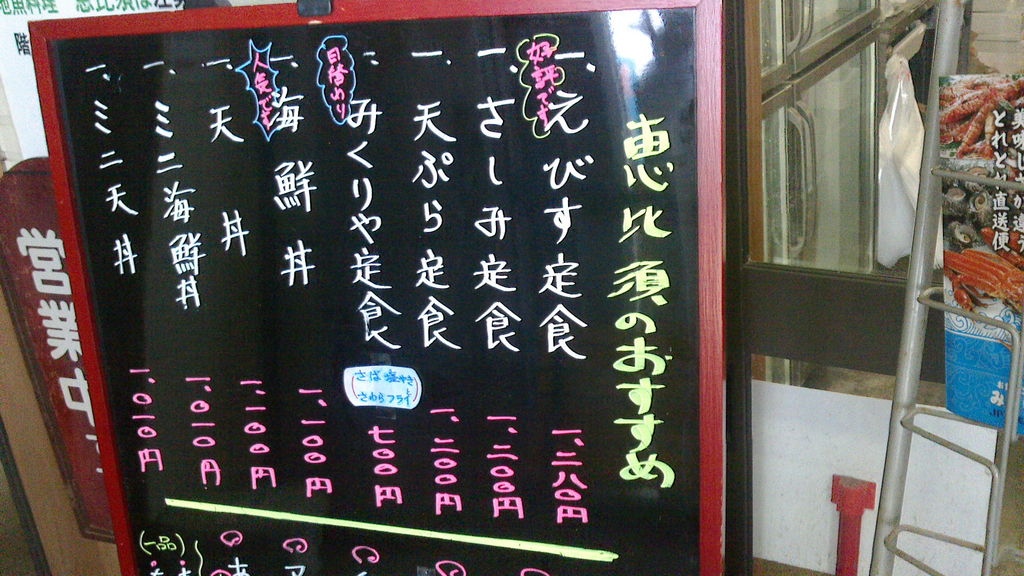 恵比須のおすすめ
好評です
一、えびす定食 一、二八〇円
一、さしみ定食 一、二〇〇円
一、天ぷら定食 一、二〇〇円
日替わり
一、みくりや定食 七〇〇円
さば塩やき
さわらフライ
人気です
一、海鮮丼 一、一〇〇円
一、天丼 一、一〇〇円
一、ミニ海鮮丼 一、〇一〇円
一、ミニ天丼 一、〇一〇円
(一品)
営業中
とれとれ直送便